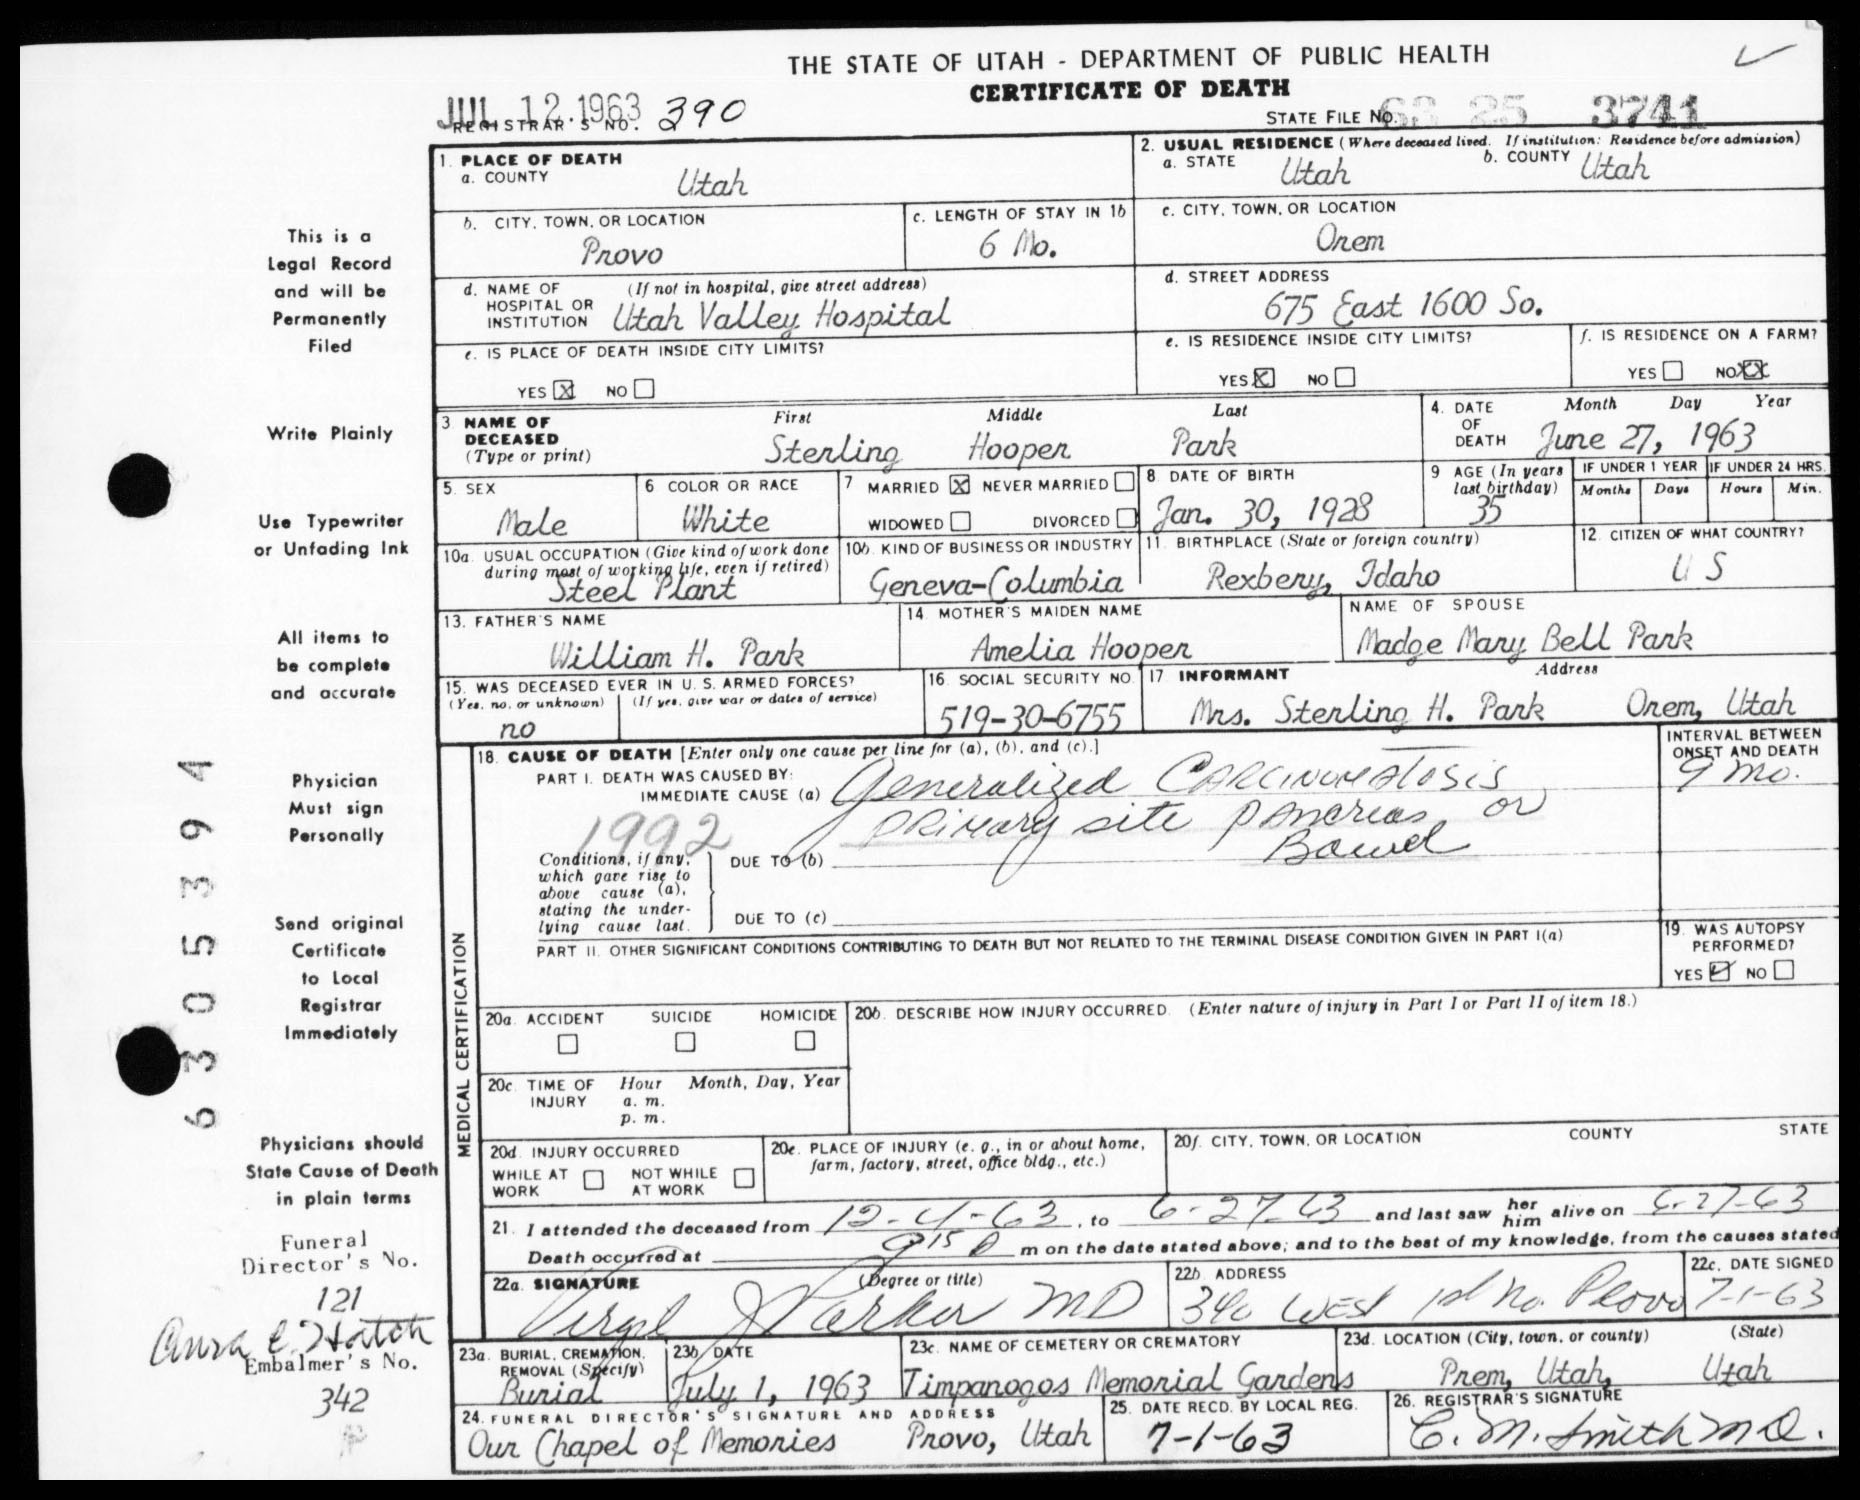 THE STATE OF UTAH - DEPARTMENT OF PUBLIC HEALTH
CERTIFICATE OF DEATH
JUL 12.1963
REGISTRAR'S NO. 390
STATE FILE NO. 63 25 3741
1. PLACE OF DEATH
a. COUNTY Utah
2. USUAL RESIDENCE (Where deceased lived. If institution: Residence before admission)
a. STATE Utah b. COUNTY Utah
b. CITY, TOWN, OR LOCATION Provo
c. LENGTH OF STAY IN 1b 6 Mo.
c. CITY, TOWN, OR LOCATION Orem
d. NAME OF HOSPITAL OR INSTITUTION (If not in hospital, give street address) Utah Valley Hospital
d. STREET ADDRESS 675 East 1600 So.
e. IS PLACE OF DEATH INSIDE CITY LIMITS?
YES X NO
e. IS RESIDENCE INSIDE CITY LIMITS?
YES X NO
f. IS RESIDENCE ON A FARM?
YES NO XX
3 NAME OF DECEASED (Type or print)
First Middle Last
Sterling Hooper Park
4. DATE OF DEATH Month Day Year
June 27, 1963
5. SEX Male
6 COLOR OR RACE White
7 MARRIED X NEVER MARRIED
WIDOWED DIVORCED
8 DATE OF BIRTH Jan. 30, 1928
9 AGE (In years last birthday) 35
IF UNDER 1 YEAR Months Days
IF UNDER 24 HRS. Hours Min.
10a. USUAL OCCUPATION (Give kind of work done during most of working life, even if retired) Steel Plant
10b. KIND OF BUSINESS OR INDUSTRY Geneva-Columbia
11. BIRTHPLACE (State or foreign country) Rexbery, Idaho
12. CITIZEN OF WHAT COUNTRY? U S
13. FATHER'S NAME William H. Park
14. MOTHER'S MAIDEN NAME Amelia Hooper
NAME OF SPOUSE Madge Mary Bell Park
15. WAS DECEASED EVER IN U. S. ARMED FORCES?
(Yes, no, or unknown) (If yes, give war or dates of service)
no
16. SOCIAL SECURITY NO. 519-30-6755
17 INFORMANT Address
Mrs. Sterling H. Park Orem, Utah
18. CAUSE OF DEATH [Enter only one cause per line for (a), (b), and (c).]
INTERVAL BETWEEN ONSET AND DEATH
PART I. DEATH WAS CAUSED BY:
IMMEDIATE CAUSE (a) Generalized Carcinomatosis 9 mo.
primary site pancreas or
Bowel
1992
Conditions, if any, which gave rise to above cause (a), stating the underlying cause last.
DUE TO (b)
DUE TO (c)
PART II. OTHER SIGNIFICANT CONDITIONS CONTRIBUTING TO DEATH BUT NOT RELATED TO THE TERMINAL DISEASE CONDITION GIVEN IN PART I(a)
19. WAS AUTOPSY PERFORMED?
YES NO
MEDICAL CERTIFICATION
20a. ACCIDENT SUICIDE HOMICIDE
20b. DESCRIBE HOW INJURY OCCURRED. (Enter nature of injury in Part I or Part II of item 18.)
20c. TIME OF INJURY Hour Month, Day, Year
a. m.
p. m.
20d. INJURY OCCURRED
WHILE AT WORK NOT WHILE AT WORK
20e. PLACE OF INJURY (e. g., in or about home, farm, factory, street, office bldg., etc.)
20f. CITY, TOWN, OR LOCATION COUNTY STATE
21. I attended the deceased from 12-4-63, to 6-27-63 and last saw her him alive on 6-27-63
Death occurred at 9 15 P m on the date stated above; and to the best of my knowledge, from the causes stated
22a. SIGNATURE (Degree or title)
Virgil J Parker MD
22b. ADDRESS 340 West 1st No. Provo
22c. DATE SIGNED 7-1-63
23a. BURIAL, CREMATION, REMOVAL (Specify) Burial
23b. DATE July 1, 1963
23c. NAME OF CEMETERY OR CREMATORY Timpanogos Memorial Gardens
23d. LOCATION (City, town, or county) (State)
Prem, Utah, Utah
24. FUNERAL DIRECTOR'S SIGNATURE AND ADDRESS
Our Chapel of Memories Provo, Utah
25. DATE RECD. BY LOCAL REG. 7-1-63
26. REGISTRAR'S SIGNATURE C. M. Smith M D.
This is a
Legal Record
and will be
Permanently
Filed
Write Plainly
Use Typewriter
or Unfading Ink
All items to
be complete
and accurate
Physician
Must sign
Personally
Send original
Certificate
to Local
Registrar
Immediately
Physicians should
State Cause of Death
in plain terms
Funeral
Director's No.
121
Hatch
Embalmer's No.
342
6305394